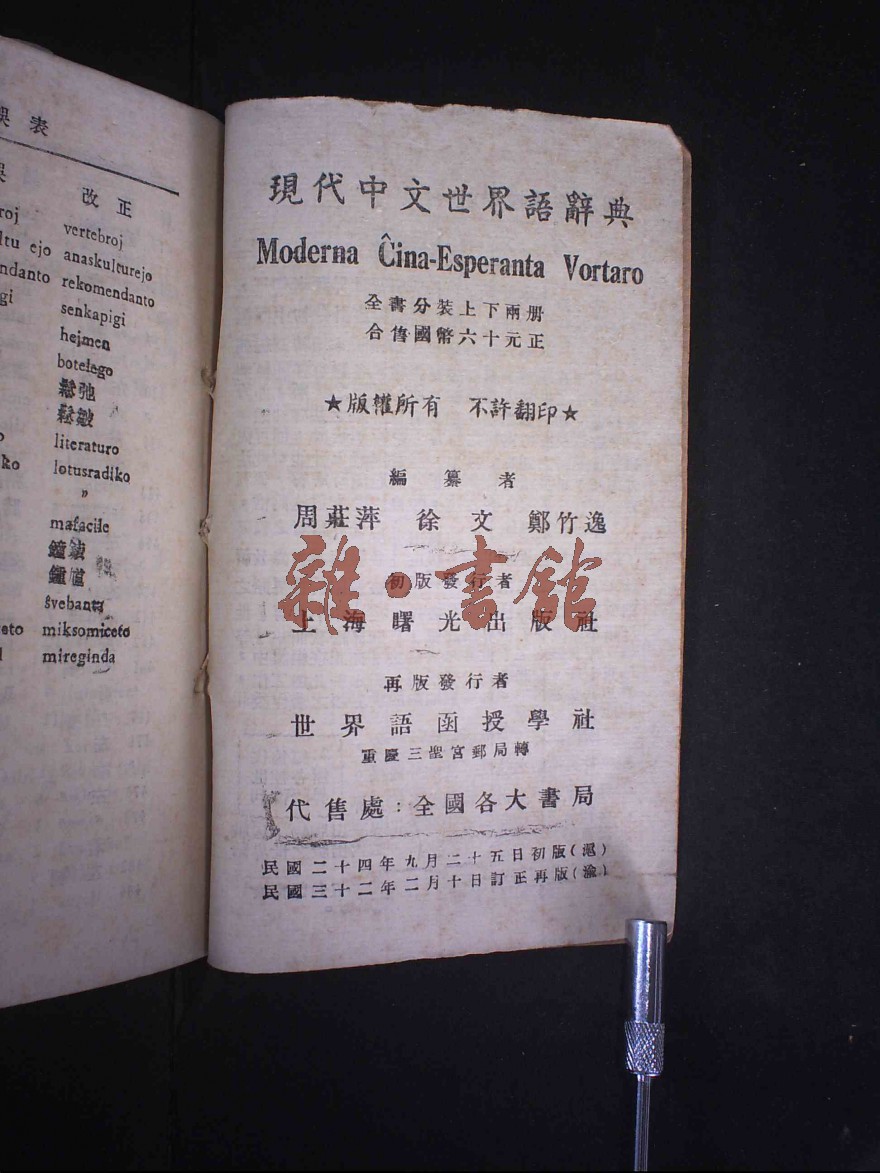 表
改正
vertebroj
ejo anaskulturejo
rekomendanto
senkapigi
hejmen
botelego
鬆弛
鬆皺
literaturo
lotusradiko
"
mafacile
švebanta
miksomiceto
mireginda
現代中文世界語辭典
Moderna Ĉina-Esperanta Vortaro
全書分裝上下兩册
合售國幣六十元正
★版權所有 不許翻印★
編纂者
周莊萍 徐文 鄭竹逸
初版發行者
上海曙光出版社
再版發行者
世界語函授學社
重慶三聖宮郵局轉
代售處：全國各大書局
民國二十四年九月二十五日初版(滬)
民國三十二年二月十日訂正再版(渝)
雜·書館